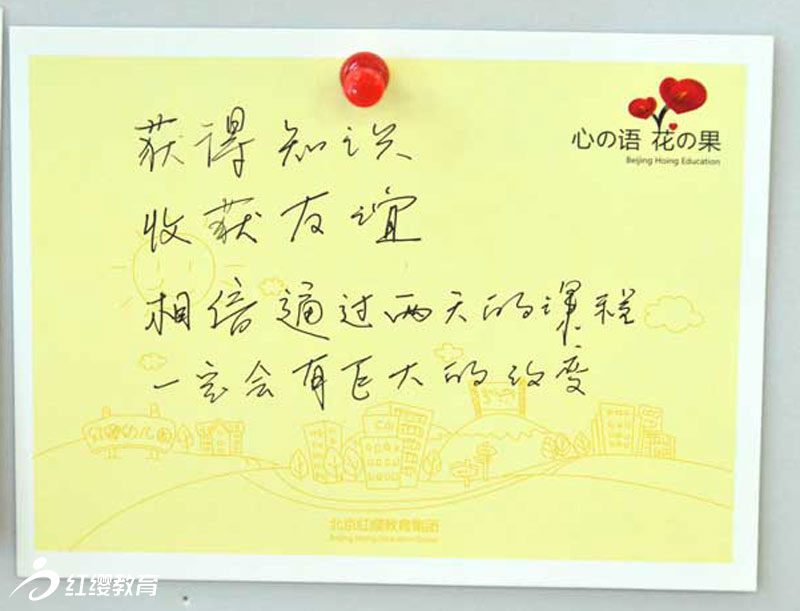 心の语 花の果
Beijing Hoing Education
获得知识
收获友谊
相信通过两天的课程
一定会有巨大的改变
红缨幼儿园
北京红缨教育集团
Beijing Hoing Education Group
红缨教育